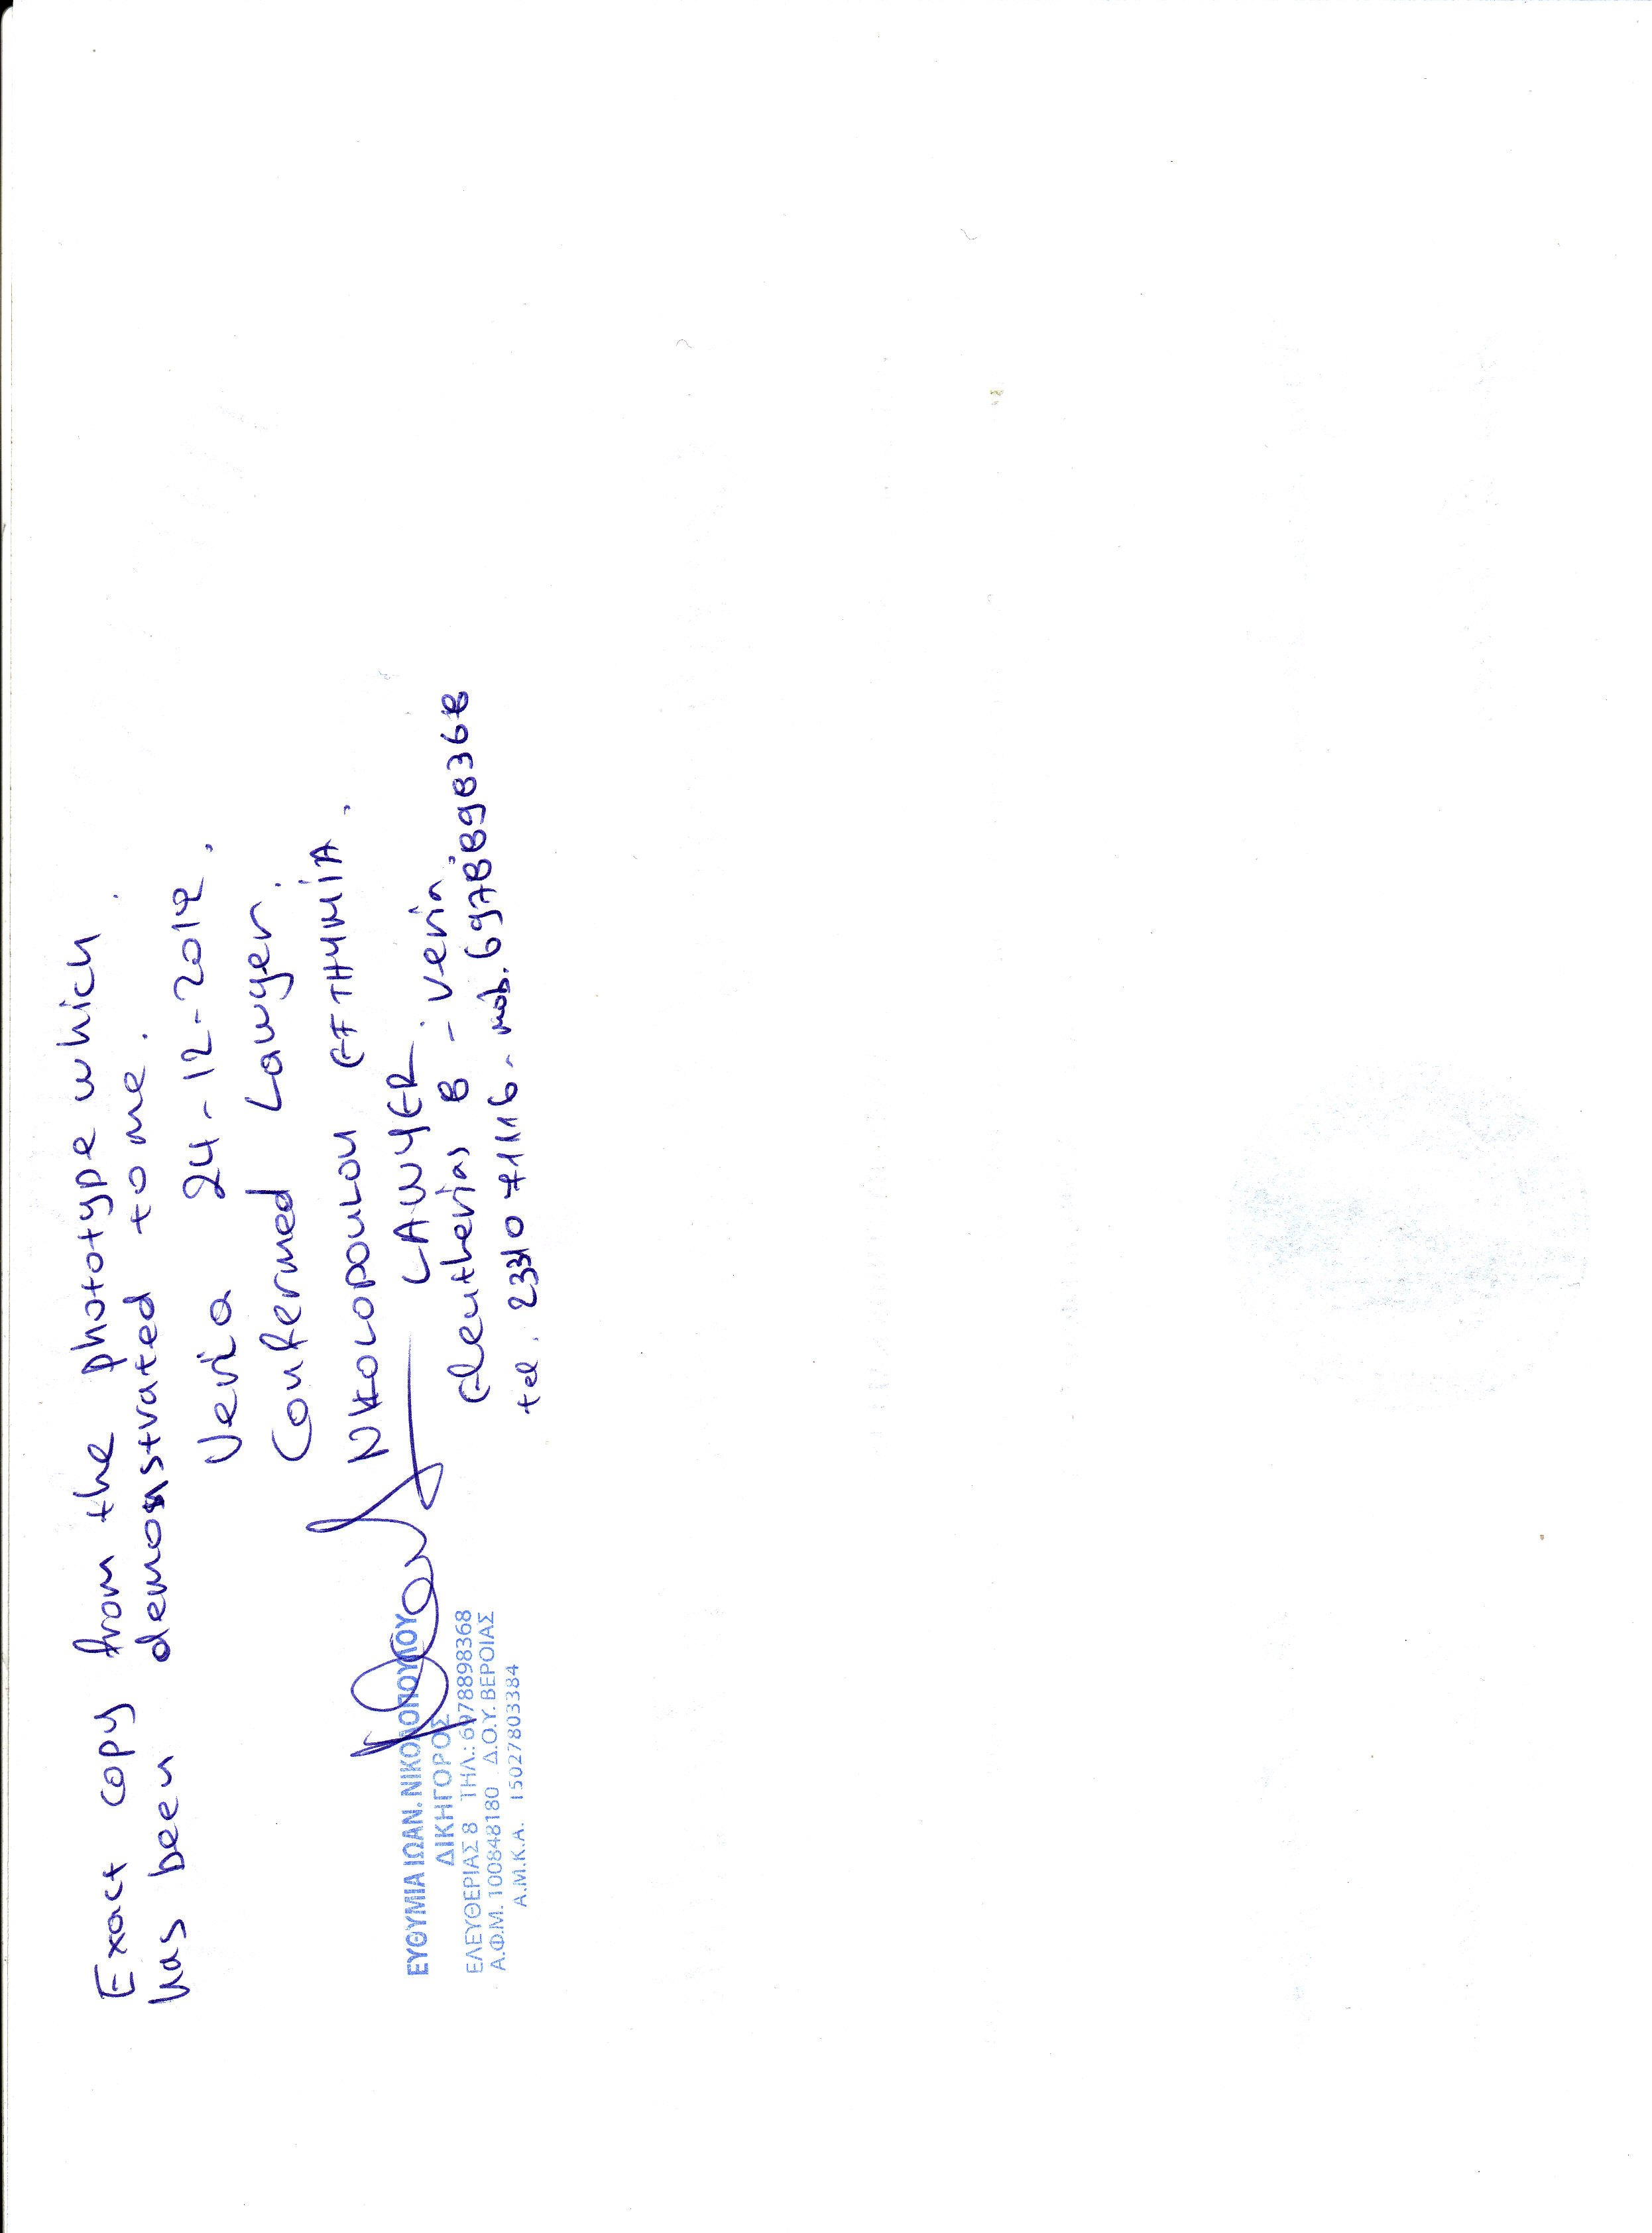 Exact copy from the phototype which
has been demonstrated to me.
Veria 24-12-2012.
Confermed Lawyer.
NIKOLOPOULOU EFTHYMIA.
LAWYER.
Eleutherias 8 - Veria
tel. 23310 71116 - mob. 6978898368
ΕΥΘΥΜΙΑ ΙΩΑΝ. ΝΙΚΟΛΟΠΟΥΛΟΥ
ΔΙΚΗΓΟΡΟΣ
ΕΛΕΥΘΕΡΙΑΣ 8 ΤΗΛ.: 6978898368
Α.Φ.Μ. 100848180 Δ.Ο.Υ. ΒΕΡΟΙΑΣ
Α.Μ.Κ.Α. 15027803384